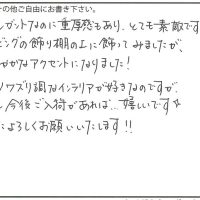 の他ご自由にお書き下さい。
レガントなのに重厚感もあり、とても素敵です
ビングの飾り棚の上に飾ってみましたが、
かなアクセントになりました!
ノワズリ調なインテリアが好きなのですが、
今後ご入荷があれば...嬉しいです☆
よろしくお願いいたします!!